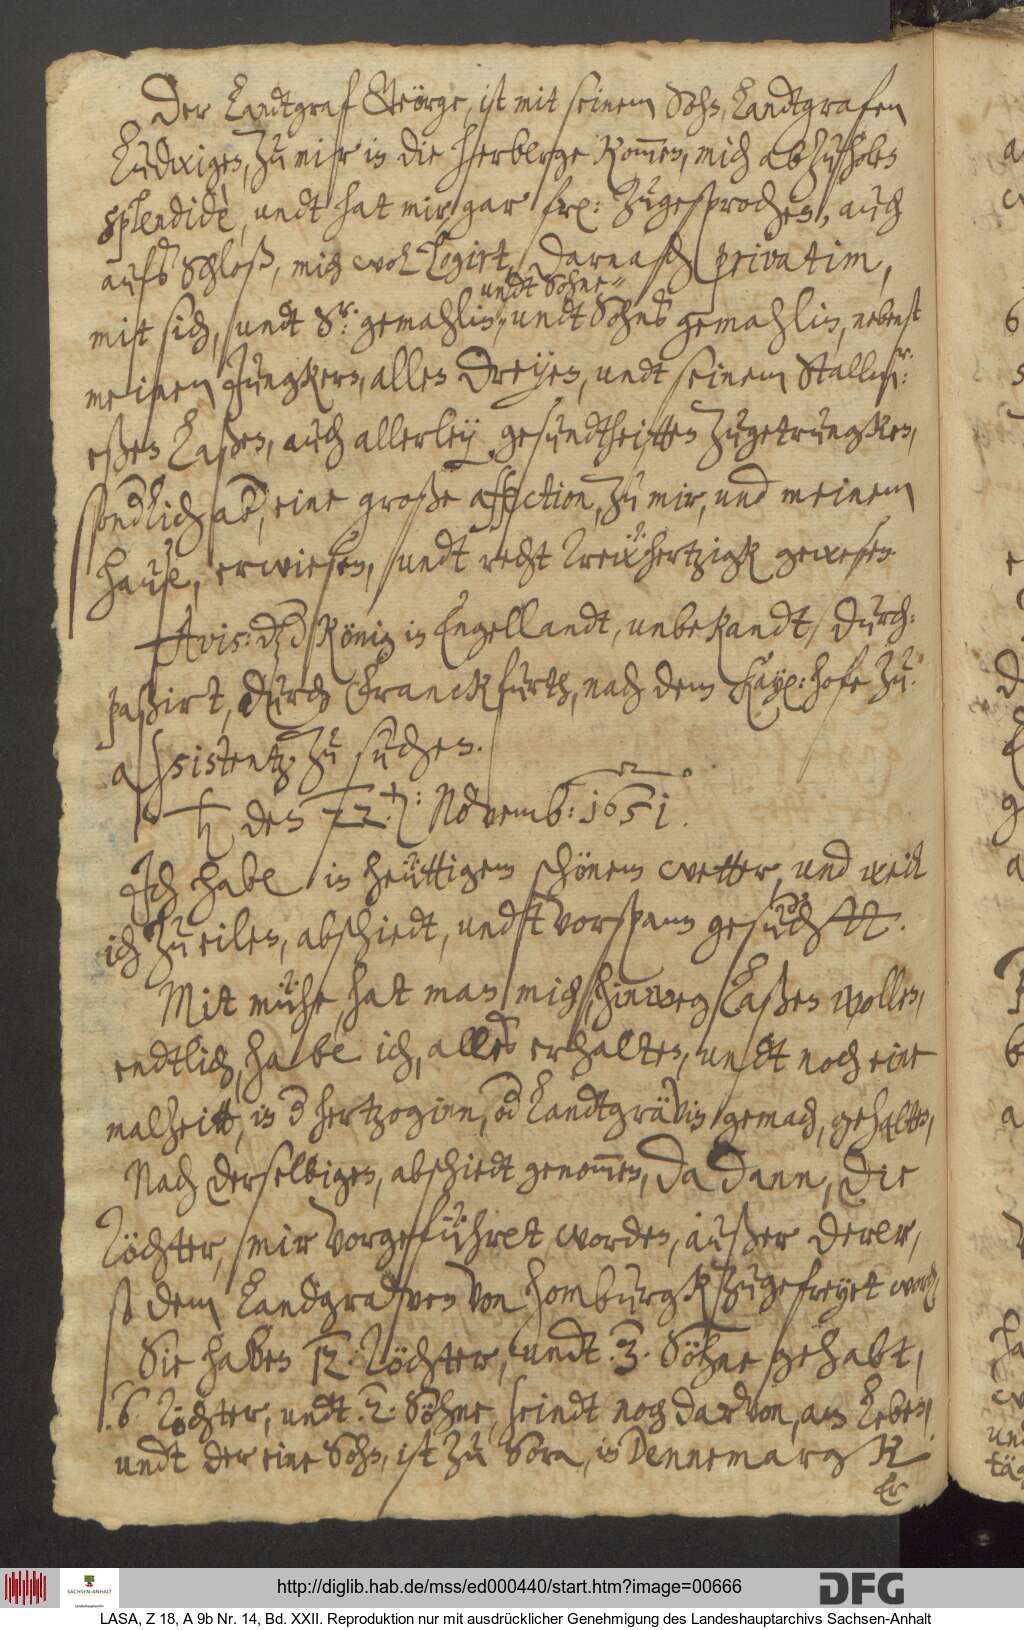 Der Landtgraf George, ist mit seinem Sohn, Landtgrafen
Ludwigen, zu mir in die herberge kom̅en, mich abzuholen
splendidè, undt hat mir gar frl: zugesprochen, auch
aufs Schloß, mich wol logirt, darnach privatim,
undt Sohne
mit sich, undt Sr: gemahlin, undt Sohns gemahlin, nebenst
meinen Jungkern, allen dreyen, undt seinem Stallmr:
eßen laßen, auch allerley gesundtheitten zugetruncken,
sondlich ab, eine große affection, zu mir, und meinem
hause, erwiesen, undt recht trewhertzigk gewesen.
Avis: dz d König in Engellandt, unbekandt, durch-
paßirt, durch Franckfurth, nach dem Kayl: hofe zu:
assistentz zu suchen.
♄ den 22. Novemb: 1651.
Ich habe in heüttigem schönem wetter, und weil
ich zu eilen, abschiedt, undt vorspann gesucht
Mit mühe, hat man mich hinweg laßen wollen,
endtlich, habe ich, alles erhalten, undt noch eine
malzeitt, in d hertzoginn, od Landtgrävin gemach, gehalten,
Nach derselbigen, abschiedt genom̅en, da dann, die
Töchter, mir vorgeführet worden, außer derer,
so dem Landgrafven von Homburgk zugefreyet word
Sie haben 12. Töchter, undt .3. Söhne gehabt,
.6. Töchter, undt .2. Söhne, seindt noch darvon, am Leben,
undt der eine Sohn, ist zu Sora, in Dennemargk
Er
http://diglib.hab.de/mss/ed000440/start.htm?image=00666
SACHSEN-ANHALT
DFG
LASA, Z 18, A 9b Nr. 14, Bd. XXII. Reproduktion nur mit ausdrücklicher Genehmigung des Landeshauptarchivs Sachsen-Anhalt